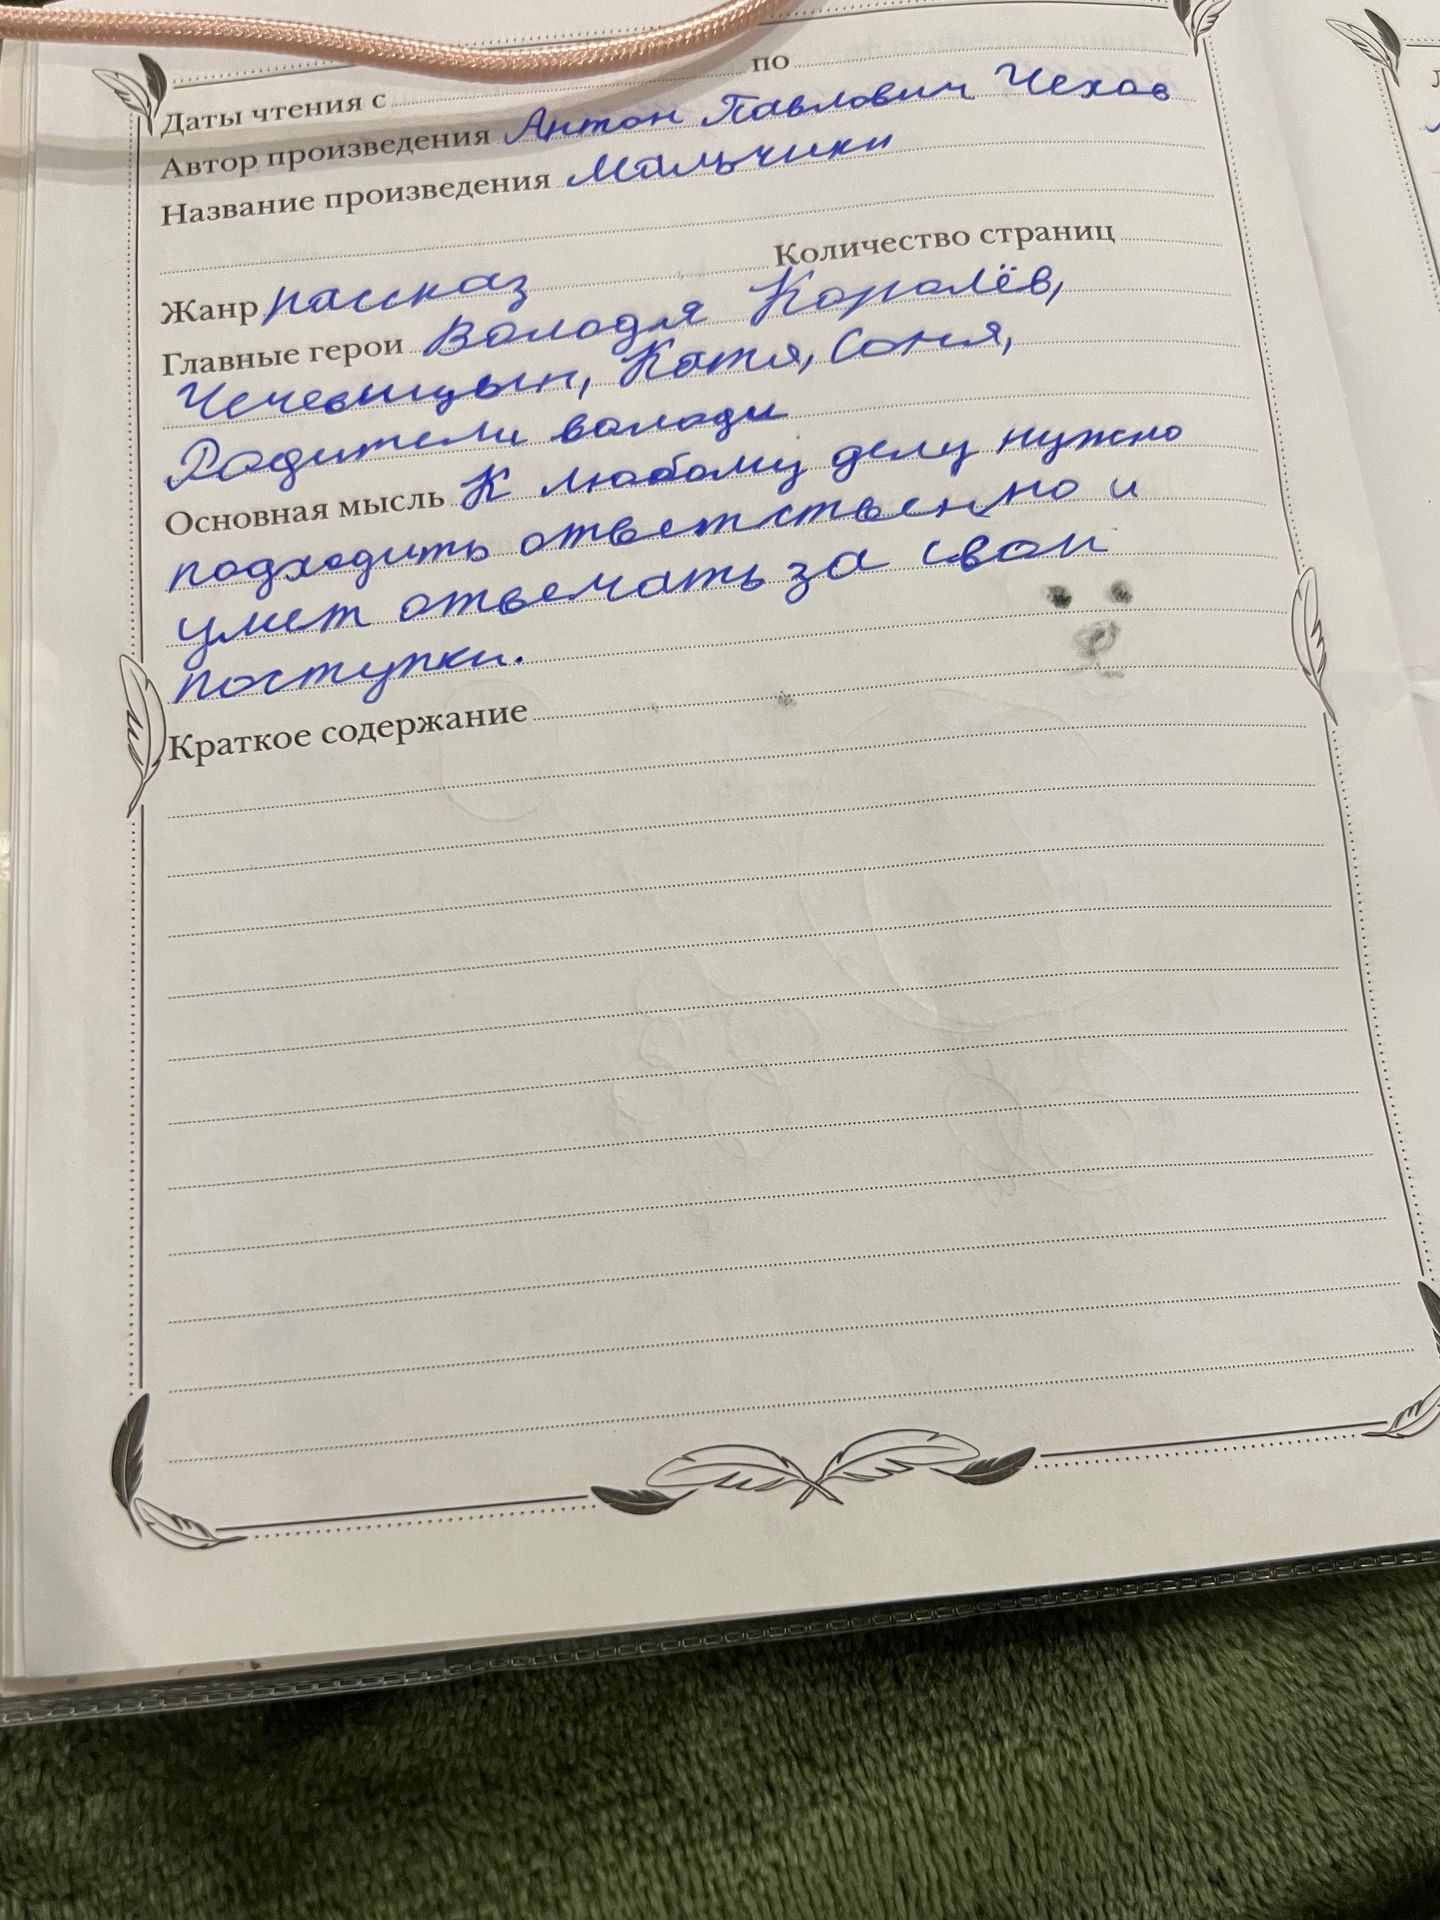 Даты чтения с по
Автор произведения Антон Павлович Чехов
Название произведения Мальчики
Количество страниц
Жанр рассказ
Главные герои Володля Королёв,
Чечевицын, Катя, Соня,
Родители володи
Основная мысль К любому делу нужно
подходить ответственно и
умет отвечать за свои
поступки.
Краткое содержание